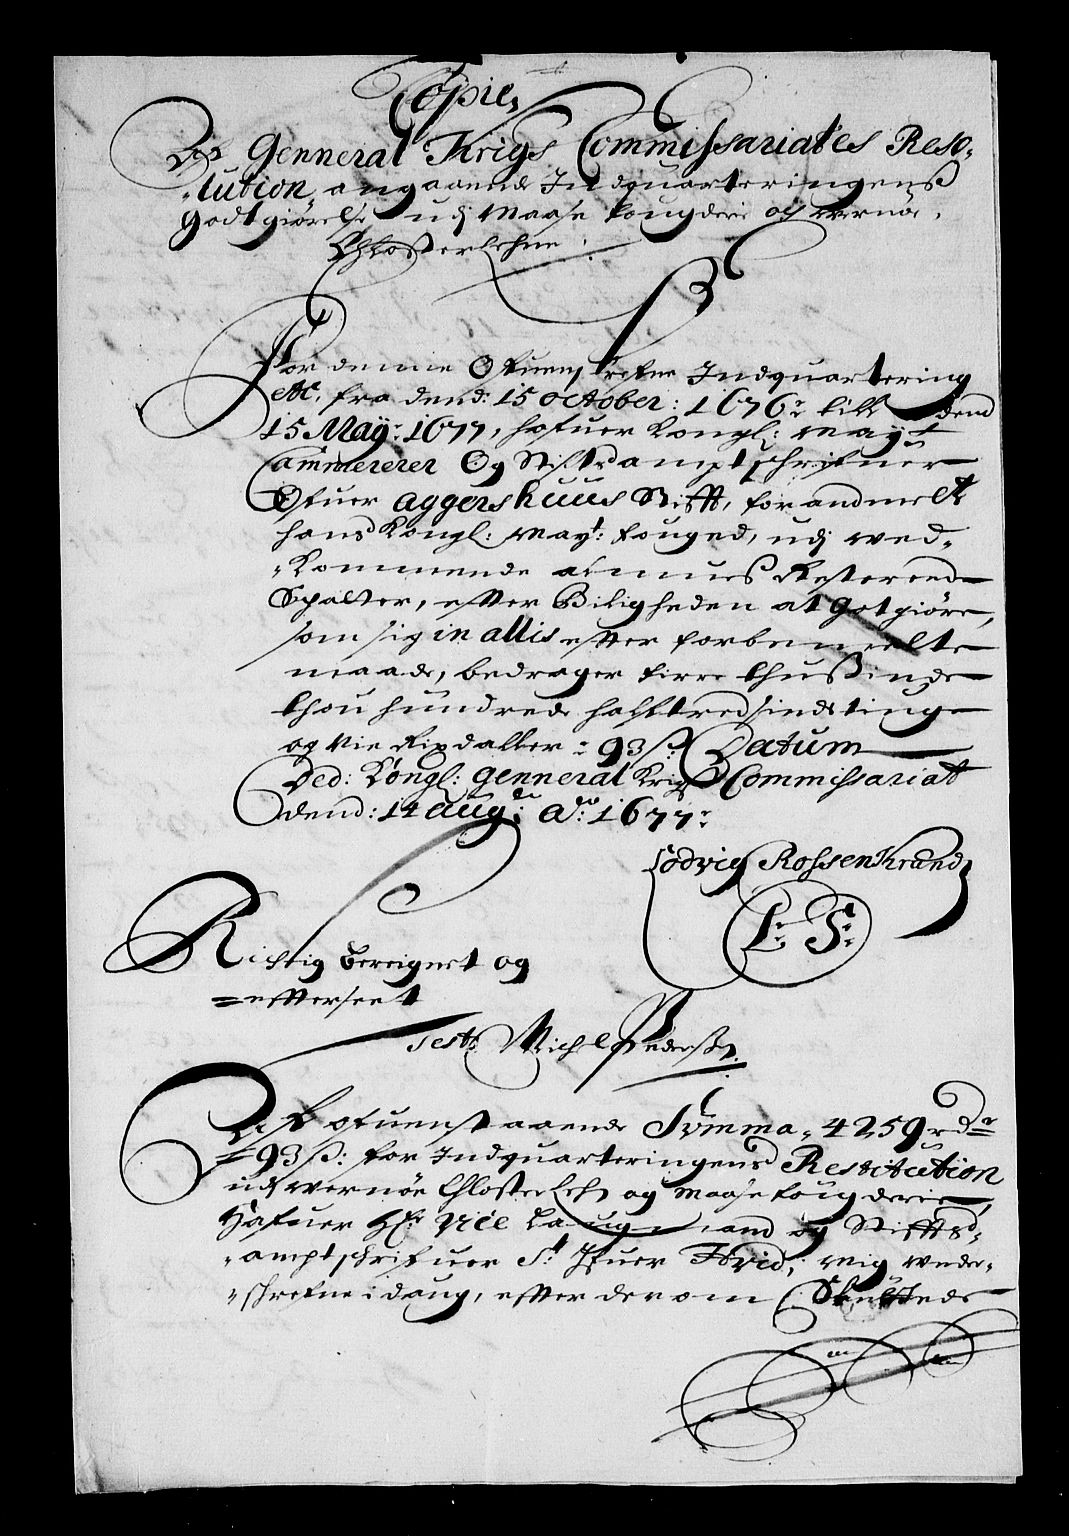 Copie,
Aff Genneral Krigs Commissariates Reso=
=lution, angaaende Indquarteringens
Godtgiørelse udj Maase fougderie og Wernøe,
Chlosterlehne:
For denne Ofuenschrefne Indquartering
etc. fra dend: 15 october: 1676 till dend
15 May: 1677, hafuer Kongl: Mayts
Cammererer Og Stiftsamptschrifuer
Ofuer aggershuus Stifft, for andmelte
hans Kongl: Mayt: fouged, udj ved=
=kommende annes Resterende
Schatter, efter Biligheden at Gotgiøre,
som sig in allis efter forbemelte
maade, bedrager firre thusinde
thou hundrede halftredsindstiuge
og Nie Rixdaller = 93 s: Datum
Ded: Kongl: genneral Krigs Commissariat
dend: 14 augti: ao: 1677:
Lodvig RossenKrands
L. S.
Richtig bereignet og
=efterseet
Test: Michel Pedersen
Aff ofuenstaaende Summa, 4259 rdr
93 s: for Indquarteringens Restitution
udj Wernøe Chlosterlehn og Maase fougderie,
Hafuer Hr: Vice Laugmand og Stiffts=
=amptschrifuer Sr. Ifuer Hvid, mig under=
=schrefne i daug, efter derom Skulstede